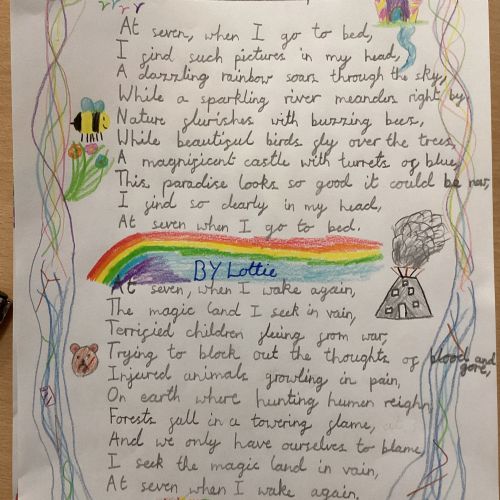 At seven, when I go to bed,
I find such pictures in my head,
A dazzling rainbow soars through the sky,
While a sparkling river meanders right by,
Nature flurishes with buzzing bees,
While beautiful birds fly over the trees,
A magnificent castle with turrets of blue,
This paradise looks so good it could be new,
I find so clearly in my head,
At seven when I go to bed.
BY Lottie
At seven, when I wake again,
The magic land I seek in vain,
Terrified children fleing from war,
Trying to block out the thoughts of blood and gore,
Injured animals growling in pain,
On earth where hunting humen reighn,
Forests fall in a towering flame,
And we only have ourselves to blame,
I seek the magic land in vain,
At seven when I wake again.